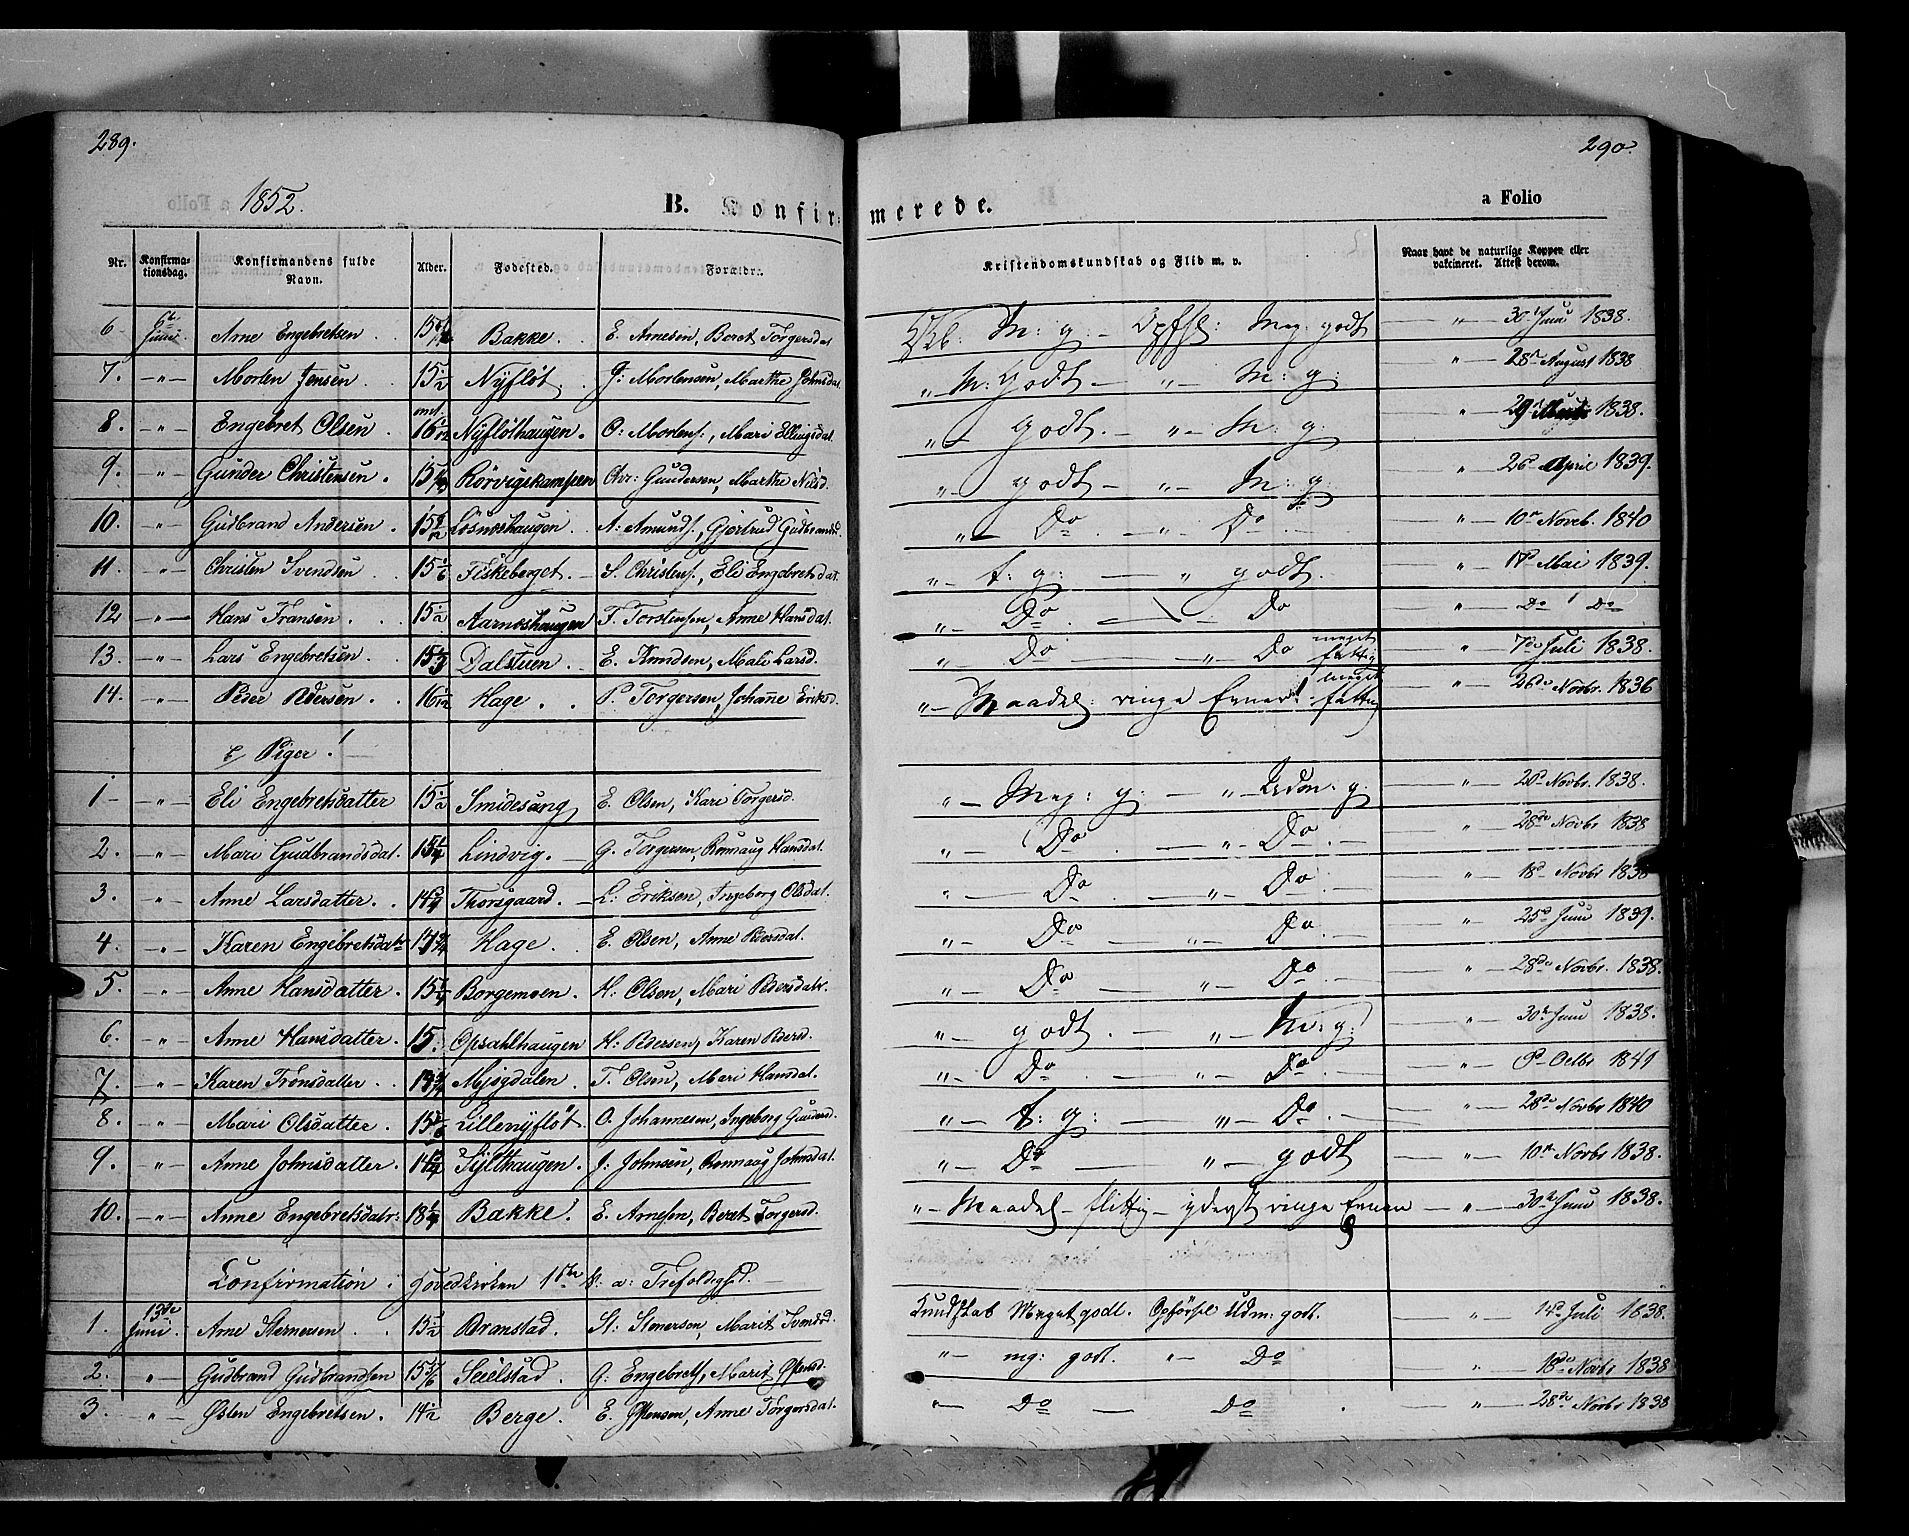 289.
290.
1852.
B. Konfir-
merede.
a Folio
Nr. Konfirma-tionsdag. Konfirmandens fulde Navn. Alder. Fødested. Forældre.
Kristendomskundskab og Flid m. v. Naar havt de naturlige Kopper eller vakcineret. Attest derom.
6 6te Juni Arne Engebretsen Bakke. E. Arnesen, Beret Torgersdat M: g: – Opfsl: Meg: godt " 30te Juni 1838.
7. –"– Morten Jensen. 15½ Nyfløt. J: Mortensen, Marthe Johnsdat. "– M: Godt – "– M: g: " 28de August 1838
8. " Engebret Olsen. 16 1/12 Nyfløthaugen. O: Mortens:, Mari Ellingsdat. "– Godt. – "– M: g: " 1838.
9. –"– Gunder Christensen. Rörvigskampen Chr: Gundersen, Marthe Nilsd. "– godt – "– M: g: " 26de April 1839.
10. –"– Gudbrand Andersen. Løsnæshaugen. A: Amunds., Gjertrud Gudbrandsd. "– Do. –"– Do. –"– 10de Novbr. 1840
11. –"– Christen Svendsen. Fiskeberget. S. Christens., Eli Engebretsdat. "– t: g: – " godt. –"– Mai 1839.
12 –"– Hans Fransen. 15½ Aarnæshaugen F. Torstensen, Anne Hansdat. "– Do. – Do –"– Do Do
13. –"– Lars Engebretsen. Dalstuen. E. Knudsen, Mali Larsd. "– Do –"– Do meget fattig –"– 7de Juli 1838.
14. –"– Peder Pedersen. 16 1/12 Hage. P. Torgersen, Johanne Eriksd. "– Maadel: ringe Evner! meget fattig –"– 26de Novbr. 1836
Piger.
1 –"– Eli Engebretsdatter 15½ Smidesang E. Olsen, Kari Torgersd. "– Meg: g: –"– Udm: g: " 28de Novbr. 1838.
2. –"– Mari Gudbrandsdat. 15¼ Lindvig. G. Torgersen, Rønnaug Hansdat. " Do. –"– Do. –"– 28de Novbr 1838
3. " Anne Larsdatter. 14¾ Thorsgaard. L: Eriksen, Ingeborg Olsdat. " – Do. –"– Do. –"– 18de Novbr 1838
4. –"– Karen Engebretsdatr Hage. E. Olsen, Anne Pedersdat. "– Do –"– Do. –"– 25de Juni 1839.
5. –"– Anne Hansdatter. 15¼ Borgemoen. H: Olsen, Mari Pedersdatr. " Do –"– Do –"– 28de Novbr. 1838.
6 –"– Anne Hansdatter. 15. Opsahlhaugen H: Pedersen, Karen Pedersd. " godt. –"– M: g: –"– 30te Juni 1838.
7. –"– Karen Tronsdatter. Mjøgdalen. T. Olsen, Mari Hansdat. "– Do –"– Do –"– Octbr 1841
8. –"– Mari Olsdatter. Lillenyfløt O. Johannesen, Ingeborg Gundersd. "– t: g: –"– Do. –"– 28de Novbr 1840
9. " Anne Johnsdatter. 14¾ Sylthaugen. J: Johnsen, Rønnaug Johnsdat. "– Do –"– godt –"– 10de Novbr 1838.
10. –"– Anne Engebretsdatr: 18¼ Bakke. E. Arnesen, Beret Torgersd. "– Maadel – flittig – yderst ringe Evner –"– 30te Juni 1838.
Confirmation i Hovedkirken 1ste S: a: Trefoldighed.
1. 13de Juni. Arne Stenersen. 15½ Branstad. St: Stenersen, Marit Svendsd. Kundskab Meget godt. Opførsel Udm: godt. " 14de Juli 1838.
2. –"– Gudbrand Gudbrandsen 15 3/6 Seielstad. G: Engebrets., Marit Østensd: "– mg: godt. "– Do " 18de Novbr 1838
3. –"– Østen Engebretsen. 14½ Berge. E. Østensen, Anne Torgersdat. "– Do – Do " 28de Novbr 1838